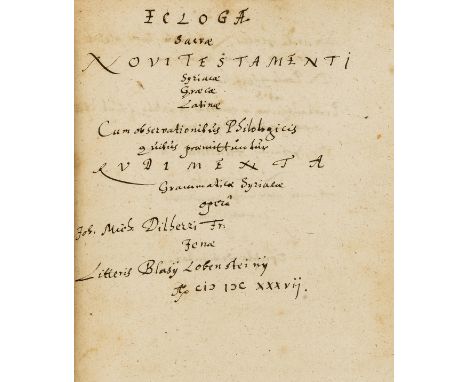 ECLOGÆ
Sacræ
NOVI TESTAMENTI
Syriacæ
Græcæ
Latinæ
Cum observationibus Philologicis
quibus præmittuntur
RUDIMENTA
Grammaticæ Syriacæ
operâ
Joh. Mich. Dilherri Fr:
Jenæ
Litteris Blasij Lobensteinij
Aō CIƆ IƆC XXXVij.